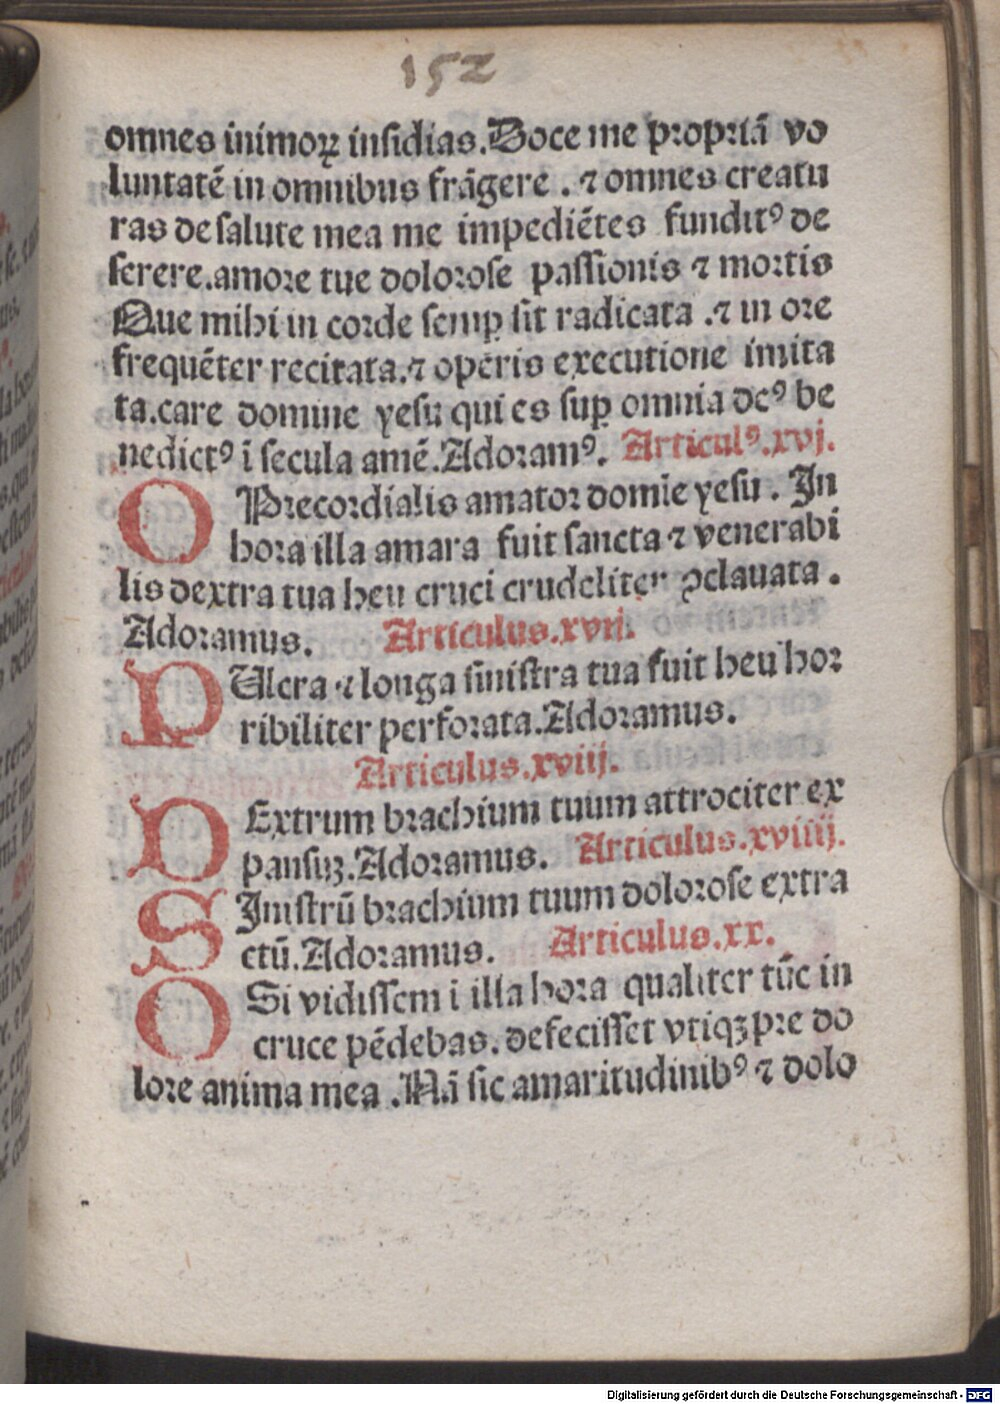 152
omnes inimoꝝ insidias. Doce me propriā vo
luntatē in omnibus frāgere . ⁊ omnes creatu
ras de salute mea me impediētes fundit⁹ de
serere. amore tue dolorose passionis ⁊ mortis
Que mihi in corde semꝑ sit radicata . ⁊ in ore
frequēter recitata. ⁊ operis executione imita
ta. care domine yesu qui es suꝑ omnia de⁹ be
nedict⁹ ī secula amē. Adoram⁹. Articul⁹. xvj.
O Precordialis amator domīe yesu . In
hora illa amara fuit sancta ⁊ venerabi
lis dextra tua heu cruci crudeliter ꝯclauata .
Adoramus. Articulus. xvij.
PUlcra ⁊ longa sinistra tua fuit heu hor
ribiliter perforata. Adoramus.
Articulus. xviij.
DExtrum brachium tuum attrociter ex
pansuꝫ. Adoramus. Articulus. xviiij.
SInistrū brachium tuum dolorose extra
ctū. Adoramus. Articulus. xx.
O Si vidissem ī illa hora qualiter tūc in
cruce pēdebas. defecisset vtiqꝫ pre do
lore anima mea . Nā sic amaritudinib⁹ ⁊ dolo
Digitalisierung gefördert durch die Deutsche Forschungsgemeinschaft - DFG